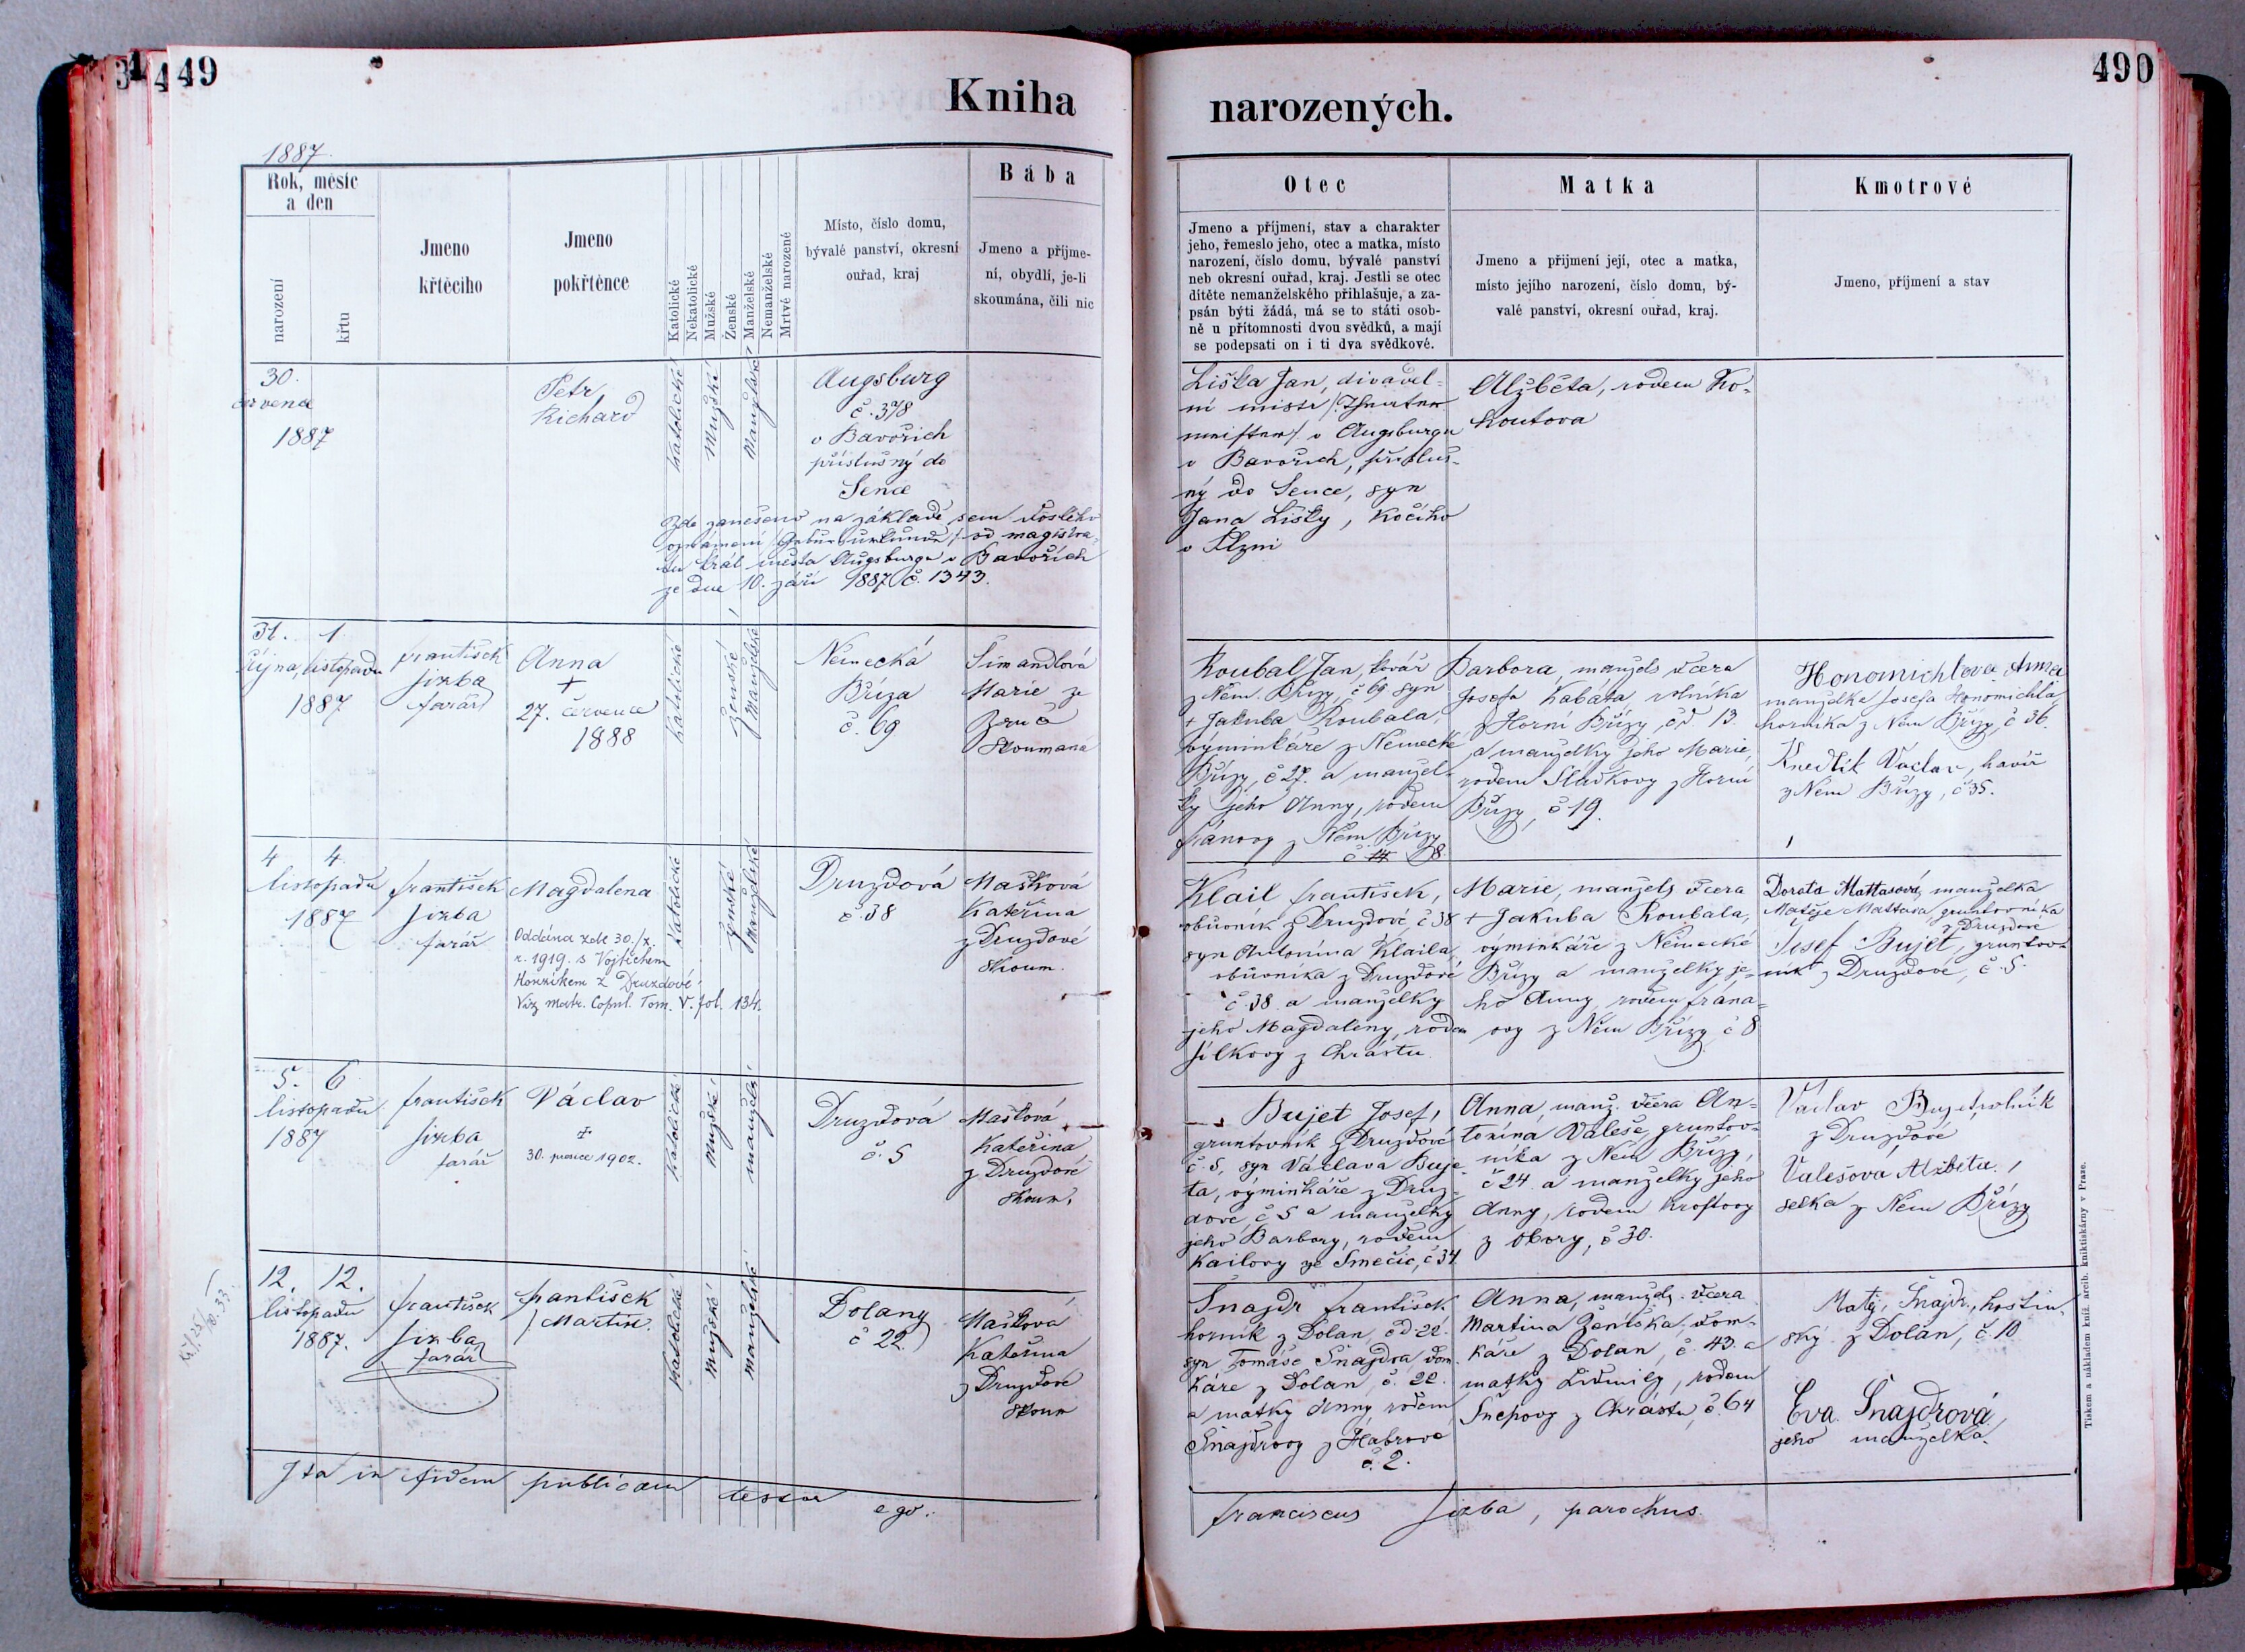 449
490
Kniha
narozených.
1887.
Rok, měsíc
a den
narození
křtu
Jmeno
křtěcího
Jmeno
pokřtěnce
Katolické
Nekatolické
Mužské
Ženské
Manželské
Nemanželské
Mrtvé narozené
Místo, číslo domu,
bývalé panství, okresní
ouřad, kraj
Bába
Jmeno a příjme-
ní, obydlí, je-li
skoumána, čili nic
Otec
Jmeno a příjmení, stav a charakter
jeho, řemeslo jeho, otec a matka, místo
narození, číslo domu, bývalé panství
neb okresní ouřad, kraj. Jestli se otec
dítěte nemanželského přihlašuje, a za-
psán býti žádá, má se to státi osob-
ně u přítomnosti dvou svědků, a mají
se podepsati on i ti dva svědkové.
Matka
Jmeno a přijmení její, otec a matka,
místo jejího narození, číslo domu, bý-
valé panství, okresní ouřad, kraj.
Kmotrové
Jmeno, příjmení a stav
30.
července
1887
Petr
Richard
Katolické
Mužské
Manželské
Augsburg
č. 378
v Bavořích
příslušný do
Sence
Zde zanešeno na základě sem došlého
oznámení od magistra-
tu král. města Augsburgu v Bavořích
ze dne 10. září 1887 č. 1343.
Liška Jan, divadel-
ní mistr
v Augsburgu
v Bavořích, příslus-
ný do Sence, syn
Jana Lišky, kočího
v Plzni
Alžběta, rodem Ko-
houtova
31. 1.
října, listopadu
1887
František
Jizba
farář
Anna
+
27. července
1888
Katolické
Ženské
Manželské
Německá
Bříza
č. 69
Šimandlová
Marie ze
Zruče
Skoumaná
Roubal Jan, kovář
z Něm. Břízy, č 69 syn
+ Jakuba Roubala,
výminkáře z Německé
Břízy, č 27. a manžel-
ky jeho Anny, rodem
Fránovy z Něm Břízy
č. 14 8.
Barbora, manžels dcera
Josefa Kabáta, rolníka
z Horní Břízy, čd 13.
a manželky jeho Marie,
rodem Sládkovy z Horní
Břízy, č 19.
Honomichlova Anna
manželka Josefa Honomichla,
horníka z Něm Břízy, č 36.
Knedlík Václav, havíř
z Něm Břízy, č 35.
4 4.
listopadu
1887
František
Jizba
farář
Magdalena
Oddána zde 30./X.
r. 1919. s Vojtěchem
Honzíkem z Druzdové.
Viz matr. Copul. Tom. V. fol. 134.
Katolické
Ženské
Manželské
Druzdová
č. 38
Mašková
Kateřina
z Druzdové
skoum.
Klail František,
obuvník z Druzdové, č 38
syn Antonína Klaila,
obuvníka z Druzdové
č 38. a manželky
jeho Magdaleny, rodem
Jílkovy z Chrástu.
Marie, manžels dcera
+ Jakuba Roubala,
výminkáře z Německé
Břízy a manželky je-
ho Anny, rodem Frána-
ovy z Něm Břízy, č 8
Dorota Mattasová, manželka
Matěje Mattasa, gruntovníka
z Druzdové
Josef Bujet, gruntov-
ník z Druzdové, č. 5.
5. 6.
listopadu
1887
František
Jizba
farář
Václav
+
30. 1902.
Katolické
Mužské
manžels
Druzdová
č. 5
Mašková
Kateřina
z Druzdové
skoum.
Bujet Josef,
gruntovník z Druzdové
č. 5, syn Václava Buje-
ta, výminkáře z Druz-
dové, č 5 a manželky
jeho Barbory, rodem
Kailovy ze Smečic, č 34.
Anna, manž. dcera An-
tonína Valeše, gruntov-
níka z Něm Břízy,
č 24. a manželky jeho
Anny, rodem Kroftovy
z Obory, č 30.
Václav Bujet, rolník
z Druzdové
Valešova Alžběta,
selka z Něm Břízy
12. 12.
listopadu
1887.
František
Jizba
farář
František
Martin.
Katolické
Mužské
manželské
Dolany
č 22.
Mašková
Kateřina
z Druzdové
skoum
Šnajdr František
horník z Dolan, čd 22.
syn Tomáše Šnajdra dom-
káře z Dolan, č. 22.
a matky Anny, rodem
Šnajdrovy z Habrova
č. 2.
Anna, manžels. dcera
Martina Ženíška, dom-
káře z Dolan, č. 43. a
matky Lidmily, rodem
Šnepovy z Chrástu, č. 64
Matěj Šnajdr, hostin-
ský z Dolan, č. 10
Eva Šnajdrová,
jeho manželka.
Ita in fidem publicam testor ego:
Franciscus Jizba, parochus.
Tiskem a nákladem kníž. arcib. knihtiskárny v Praze.